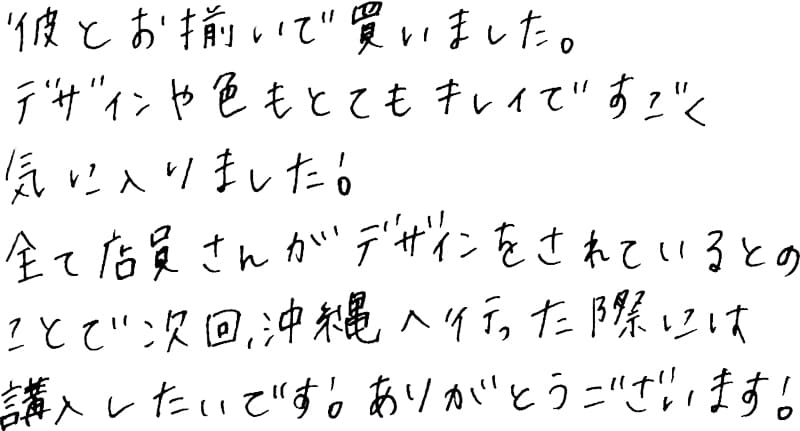 彼とお揃いで買いました。
デザインや色もとてもキレイですごく
気に入りました!
全て店員さんがデザインをされているとの
ことで次回、沖縄へ行った際には
講入したいです!ありがとうございます!